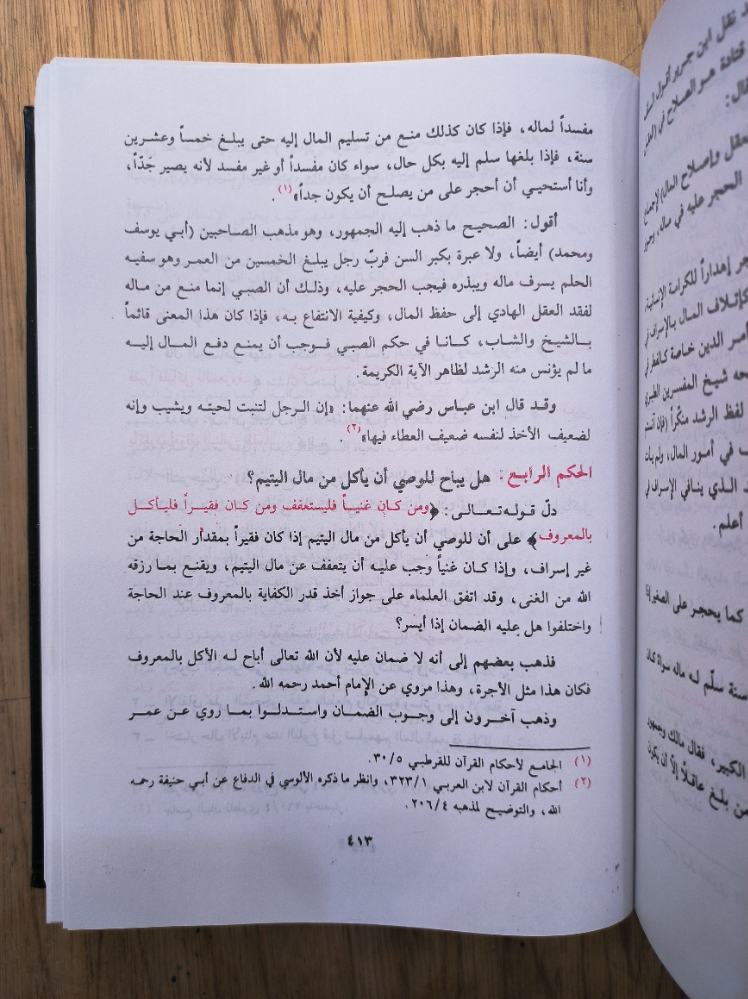 مفسداً لماله، فإذا كان كذلك منع من تسليم المال إليه حتى يبلغ خمساً وعشرين
سنة، فإذا بلغها سلم إليه بكل حال، سواء كان مفسداً أو غير مفسد لأنه يصير جَدّاً،
وأنا أستحيي أن أحجر على من يصلح أن يكون جداً»(١).
أقول: الصحيح ما ذهب إليه الجمهور، وهو مذهب الصاحبين (أبي يوسف
ومحمد) أيضاً، ولا عبرة بكبر السن فربّ رجل يبلغ الخمسين من العمر وهو سفيه
الحلم يسرف ماله ويبذره فيجب الحجر عليه، وذلك أن الصبي إنما منع من ماله
لفقد العقل الهادي إلى حفظ المال، وكيفية الانتفاع به، فإذا كان هذا المعنى قائماً
بالشيخ والشاب، كانا في حكم الصبي فوجب أن يمنع دفع المال إليه
ما لم يؤنس منه الرشد لظاهر الآية الكريمة.
وقد قال ابن عباس رضي الله عنهما: «إن الرجل لتنبت لحيته ويشيب وإنه
لضعيف الأخذ لنفسه ضعيف العطاء فيها»(٢).
الحكم الرابع: هل يباح للوصي أن يأكل من مال اليتيم؟
دلّ قوله تعالى: ﴿ومن كان غنياً فليستعفف ومن كان فقيراً فليأكل
بالمعروف﴾ على أن للوصي أن يأكل من مال اليتيم إذا كان فقيراً بمقدار الحاجة من
غير إسراف، وإذا كان غنياً وجب عليه أن يتعفف عن مال اليتيم، ويقنع بما رزقه
الله من الغنى، وقد اتفق العلماء على جواز أخذ قدر الكفاية بالمعروف عند الحاجة
واختلفوا هل عليه الضمان إذا أيسر؟
فذهب بعضهم إلى أنه لا ضمان عليه لأن الله تعالى أباح له الأكل بالمعروف
فكان هذا مثل الأجرة، وهذا مروي عن الإمام أحمد رحمه الله.
وذهب آخرون إلى وجوب الضمان واستدلوا بما روي عن عمر
(١) الجامع لأحكام القرآن للقرطبي ٣٠/٥.
(٢) أحكام القرآن لابن العربي ٣٢٣/١، وانظر ما ذكره الألوسي في الدفاع عن أبي حنيفة رحمه
الله، والتوضيح لمذهبه ٢٠٦/٤.
٤١٣
نقل ابن جرير أقوال
قتادة هو الصلاح في العقل
العقل وإصلاح المال
الحجر عليه في ماله
إهداراً للكرامة الإنسانية
المال بالإسراف
أمر الدين خاصة
شيخ المفسرين الطبري
لفظ الرشد منكّراً
في أمور المال
الذي ينافي الإسراف في
أعلم.
كما يحجر على الصغير
سنة سلّم له ماله سواء كان
الكبير، فقال مالك وجمهور
من بلغ عاقلاً إلّا أن يكون